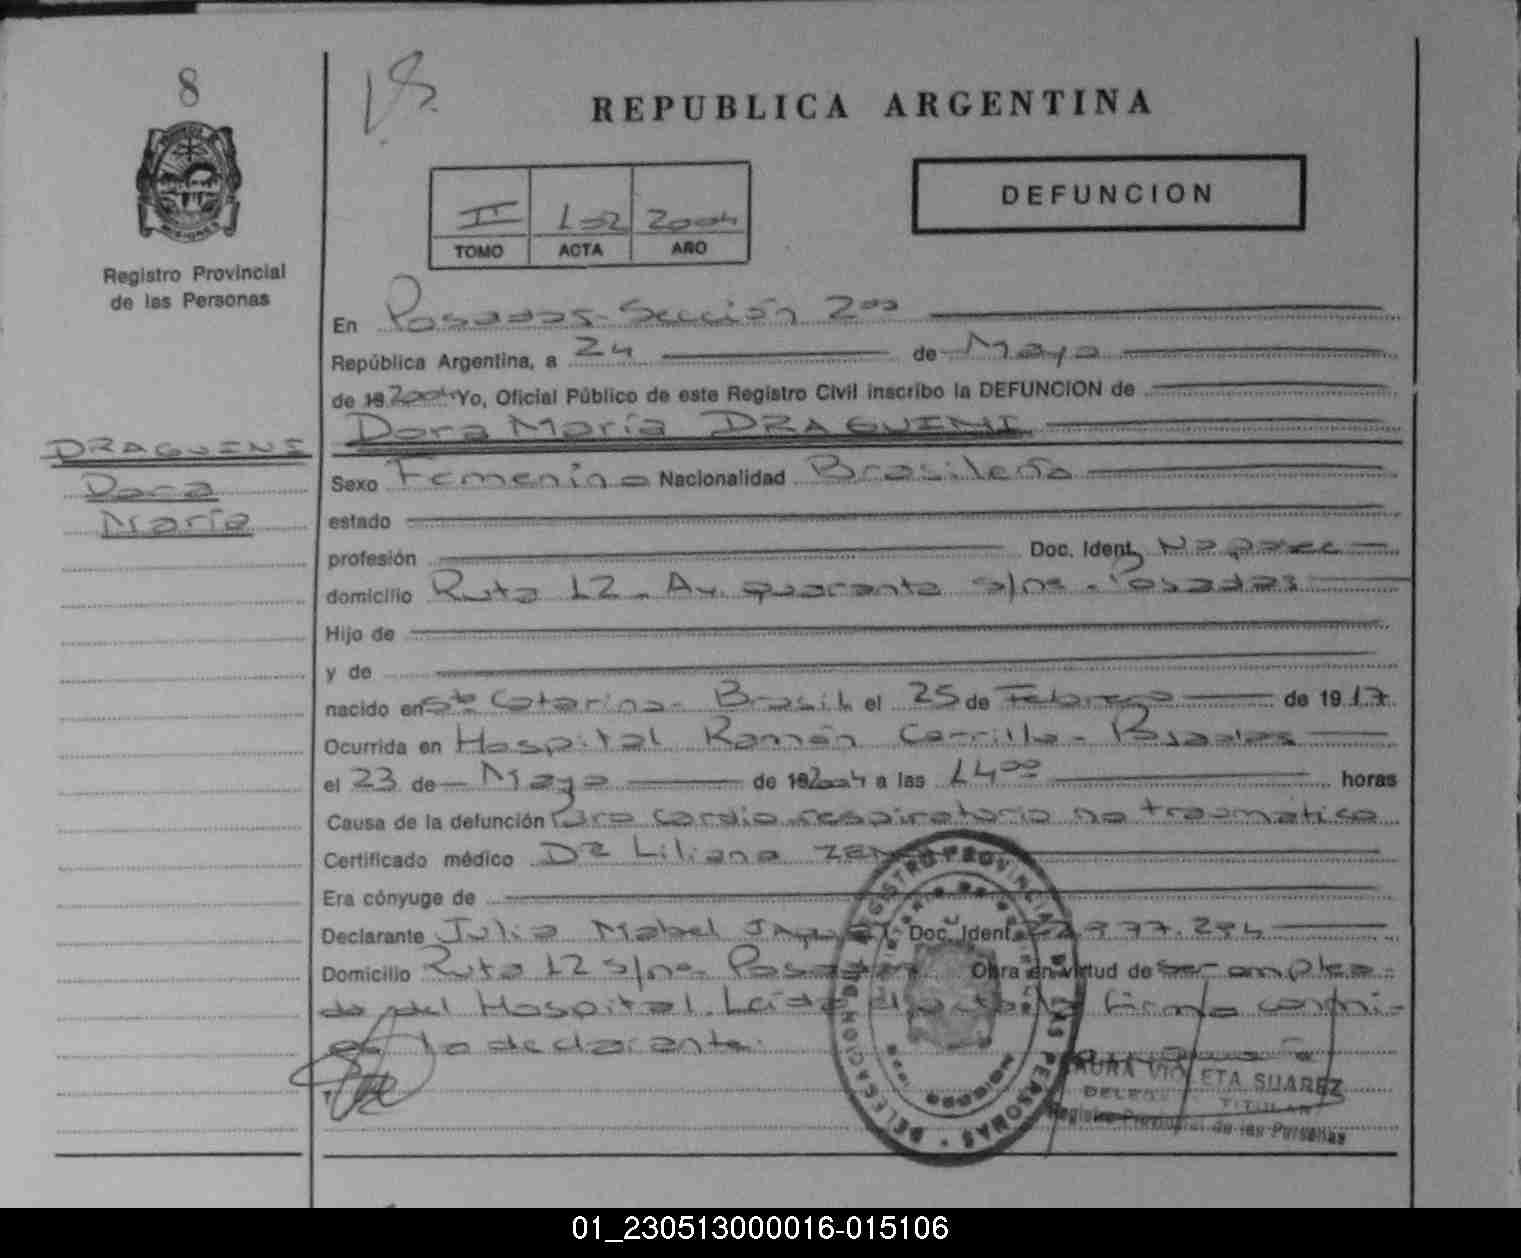 8
REPUBLICA ARGENTINA
MISIONES
Registro Provincial
de las Personas
II 102 2004
TOMO ACTA AÑO
DEFUNCION
En Posadas - Sección 2da
República Argentina, a 24 de Mayo
de 19 2004 Yo, Oficial Público de este Registro Civil inscribo la DEFUNCION de
Dora María DRAGUINI
DRAGUINI
Dora
María
Sexo Femenino Nacionalidad Brasileña
estado
profesión Doc. Ident. No posee
domicilio Ruta 12 - Av. quaranta s/nº - Posadas
Hijo de
y de
nacido en Sta Catarina - Brasil el 25 de Febrero de 1917
Ocurrida en Hospital Ramón Carrillo - Posadas
el 23 de Mayo de 19 2004 a las 14 00 horas
Causa de la defunción Paro cardio respiratorio no traumático
Certificado médico Dra Liliana
Era cónyuge de
Declarante Julia Mabel Doc. Ident. 977.294
Domicilio Ruta 12 s/nº - Posadas Obra en virtud de ser emplea-
do del Hospital. Leída el acta la firma conmi-
go la declarante.
LAURA VIOLETA SUAREZ
DELEGADA TITULAR
Registro Provincial de las Personas
REGISTRO PROVINCIAL DE LAS PERSONAS
DELEGACION
01_230513000016-015106